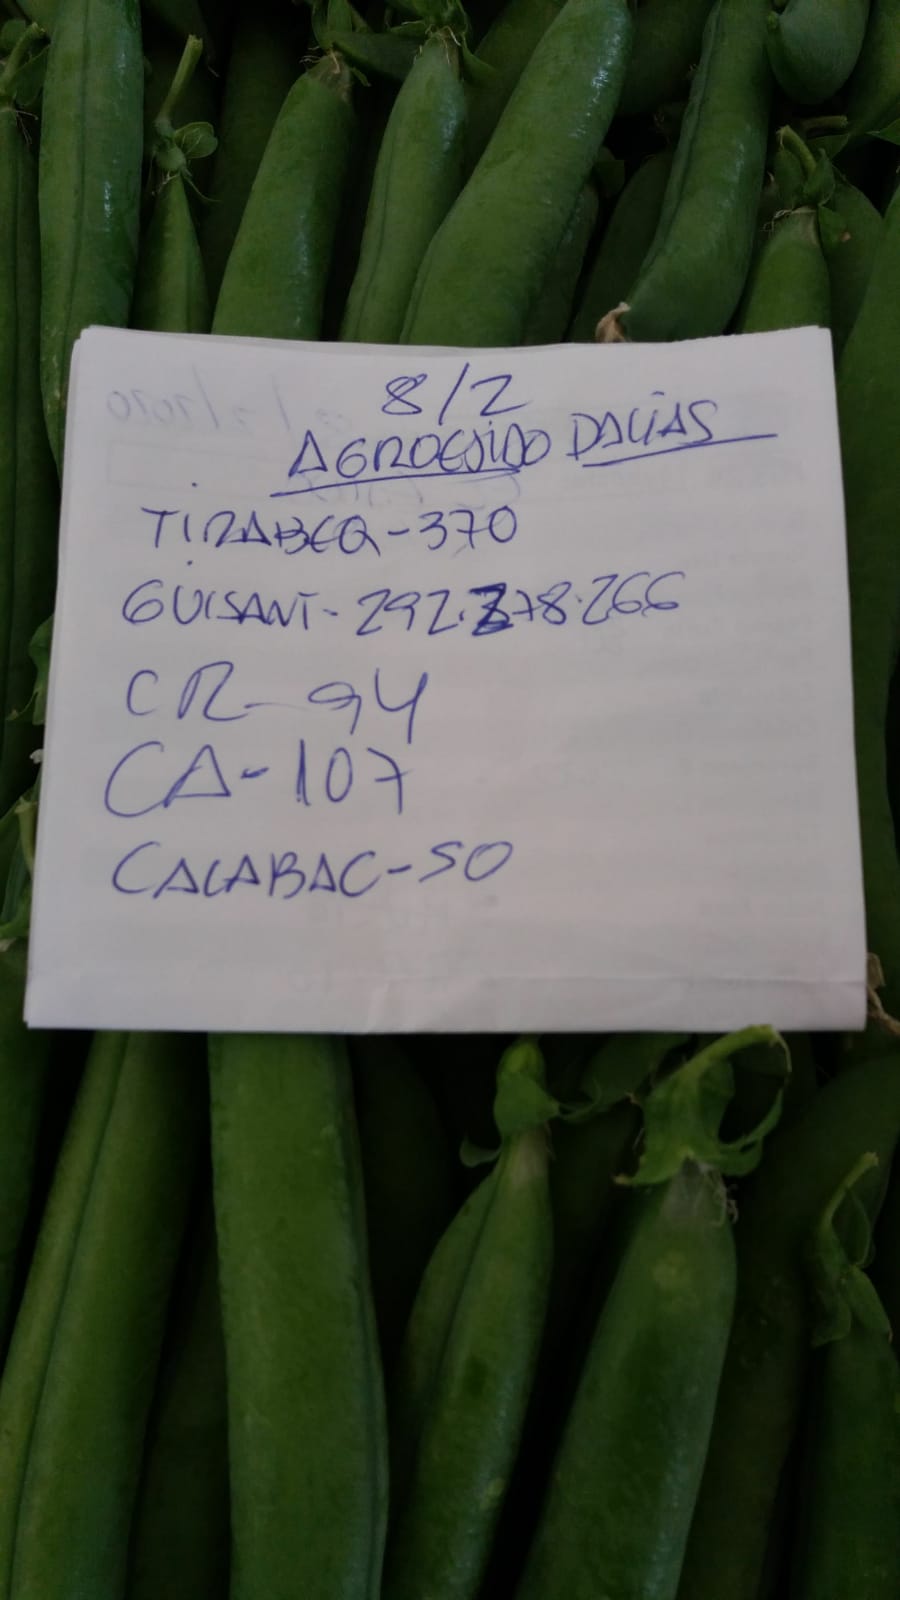 8/2
AGROEJIDO DALIAS
TIRABEQ-370
GUISANT-292.278.266
CR-94
CA-107
CALABAC-50